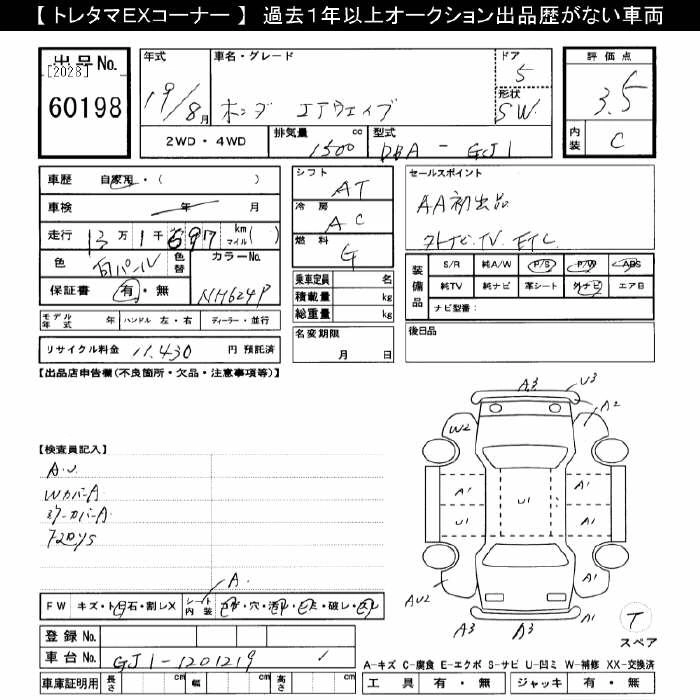 【 トレタマEXコーナー 】 過去１年以上オークション出品歴がない車両
出品No.
[2028]
60198
年式
19/8月
車名・グレード
ホンダ エアウェイブ
ドア
5
形状
SW
2WD・4WD
排気量 cc
1500
型式
DBA - GJ1
評価点
3.5
内装
C
車歴 自家用・( )
車検 年 月
走行 13万1千697 km マイル( )
色 白パール 色替
カラーNo.
NH624P
保証書 有・無
モデル年式 年 ハンドル 左・右 ディーラー・並行
リサイクル料金 11,430 円 預託済
シフト
AT
冷房
AC
燃料
G
乗車定員 名
積載量 kg
総重量 kg
名変期限
月 日
セールスポイント
AA初出品
ストナビ.TV. ETC
装備品
S/R 純A/W P/S P/W ABS
純TV 純ナビ 革シート 外ナビ エアB
ナビ型番:
後日品
【出品店申告欄(不良箇所・欠品・注意事項等)】
【検査員記入】
A.U
WカバーA
ミラーカバーA
A
FW キズ・ト日石・割レX
シート内装 コゲ・穴・汚レ・シミ・破レ・スレ
登録No.
車台No. GJ1-1201219
車庫証明用 長さ cm 幅 cm 高さ cm
A3
U3
A2
W2
A1
U1
U1
A1
A1
AU2
A1
A3
A3
A1
T
スペア
A-キズ C-腐食 E-エクボ S-サビ U-凹ミ W-補修 XX-交換済
工具 有・無 ジャッキ 有・無